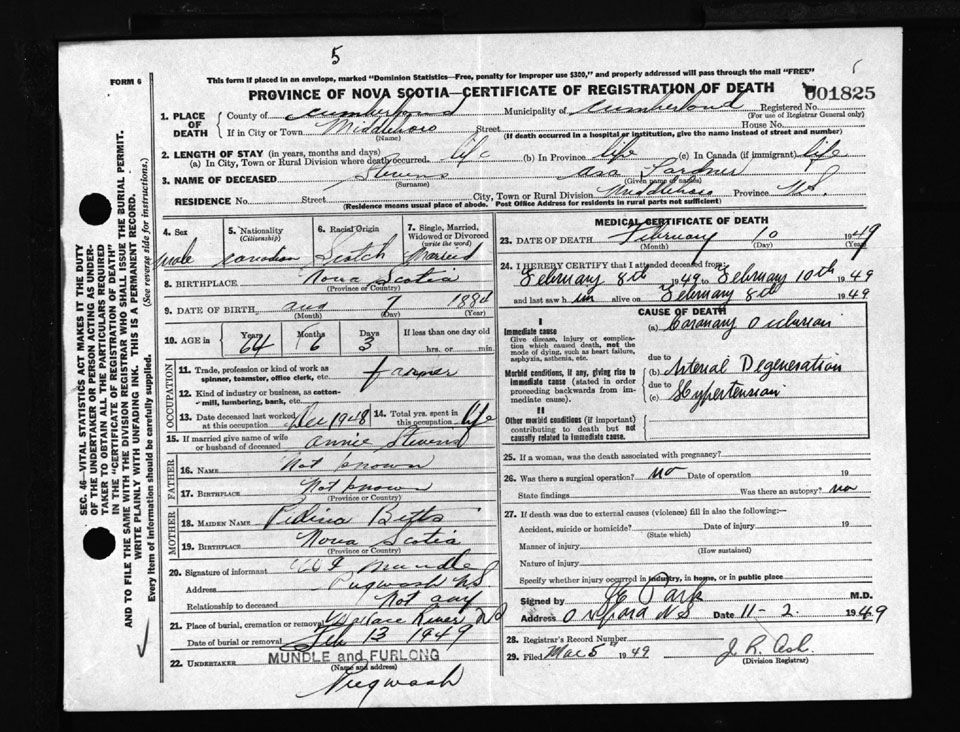 5
FORM 6
This form if placed in an envelope, marked "Dominion Statistics—Free, penalty for improper use $300," and properly addressed will pass through the mail "FREE"
PROVINCE OF NOVA SCOTIA—CERTIFICATE OF REGISTRATION OF DEATH
001825
1. PLACE OF DEATH
County of Cumberland Municipality of Cumberland Registered No.
(For use of Registrar General only)
If in City or Town Middleboro Street House No.
(Name) (If death occurred in a hospital or institution, give the name instead of street and number)
2. LENGTH OF STAY (in years, months and days)
(a) In City, Town or Rural Division where death occurred. life (b) In Province life (c) In Canada (if immigrant) life
3. NAME OF DECEASED Stevens Asa
(Surname) (Given name or names)
RESIDENCE No. Street City, Town or Rural Division Middleboro Province N.S.
(Residence means usual place of abode. Post Office Address for residents in rural parts not sufficient)
4. Sex
male
5. Nationality
(Citizenship)
Canadian
6. Racial Origin
Scotch
7. Single, Married, Widowed or Divorced
(write the word)
Married
8. BIRTHPLACE Nova Scotia
(Province or Country)
9. DATE OF BIRTH Aug 7 1884
(Month) (Day) (Year)
10. AGE in Years Months Days If less than one day old
64 6 3 hrs. or min.
OCCUPATION
11. Trade, profession or kind of work as spinner, teamster, office clerk, etc. farmer
12. Kind of industry or business, as cotton-mill, lumbering, bank, etc.
13. Date deceased last worked at this occupation Dec 1948
14. Total yrs. spent in this occupation life
15. If married give name of wife or husband of deceased Annie Stevens
FATHER
16. NAME Not known
17. BIRTHPLACE Not known
(Province or Country)
MOTHER
18. MAIDEN NAME Betts
19. BIRTHPLACE Nova Scotia
(Province or Country)
20. Signature of informant Mundle
Address Pugwash N.S.
Relationship to deceased Not any
21. Place of burial, cremation or removal Wallace River N.S.
Date of burial or removal Feb 13 1949
22. UNDERTAKER MUNDLE and FURLONG
(Name and address)
Pugwash
MEDICAL CERTIFICATE OF DEATH
23. DATE OF DEATH February 10 1949
(Month) (Day) (Year)
24. I HEREBY CERTIFY that I attended deceased from:
February 8th 1949 to February 10th 1949
and last saw h im alive on February 8th 1949
CAUSE OF DEATH
I
Immediate cause
Give disease, injury or complication which caused death, not the mode of dying, such as heart failure, asphyxia, asthenia, etc.
(a) Coronary Occlusion
due to
Morbid conditions, if any, giving rise to immediate cause (stated in order proceeding backwards from immediate cause).
(b) Arterial Degeneration
due to
(c) Hypertension
II
Other morbid conditions (if important) contributing to death but not causally related to immediate cause.
25. If a woman, was the death associated with pregnancy?
26. Was there a surgical operation? no Date of operation 19
State findings Was there an autopsy? no
27. If death was due to external causes (violence) fill in also the following:—
Accident, suicide or homicide? Date of injury 19
(State which)
Manner of injury
(How sustained)
Nature of injury
Specify whether injury occurred in industry, in home, or in public place
Signed by Park M.D.
Address Oxford N.S. Date 11-2. 1949
28. Registrar's Record Number
29. Filed Mar 5th 1949
(Division Registrar)
SEC. 46—VITAL STATISTICS ACT MAKES IT THE DUTY
OF THE UNDERTAKER OR PERSON ACTING AS UNDER-
TAKER TO OBTAIN ALL THE PARTICULARS REQUIRED
IN THE "CERTIFICATE OF REGISTRATION OF DEATH"
AND TO FILE THE SAME WITH THE DIVISION REGISTRAR WHO SHALL ISSUE THE BURIAL PERMIT.
WRITE PLAINLY WITH UNFADING INK. THIS IS A PERMANENT RECORD.
Every item of information should be carefully supplied. (See reverse side for instructions.)